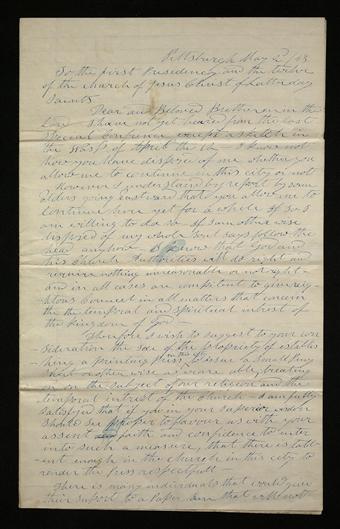 Pittsburgh May 2d 43
To the first Presidency and the twelve
of the church of Jesus Christ of Latterday
Saints
Dear and Beloved Brotheren in the
I have not yet heard from the last
Special Conference except a sketch in
the Wasp of April the I know not
how you have dispose of me whether you
allow me to continue in this city or not
However I understand by report by som
Elders going eastward that you allow me to
Continue here yet for a while if so I
am willing to do so if an other wise
disposed of my whole soul says follow the
anyhow. I know that God and
his Church Authorities will do right and
require nothing unreasonable or not right
and in all cases are compitent to give rig-
ous Counsel in all matters that concern
the the temporal and spiritual intrest of
the Kingdom of God
Therefore I wish to suggest to your con
sideration the of the propriety of establis
hing a printing Press to issue a small
or other wise as we are able, treating
on on the subject of our religion and the
temporal intrest of the church I am fully
satisfied that if you in your superior
should see proper to favour us with your
assent faith and confidence to enter
into such a measure, that there is talent
enough in the church in this city to
render the press respectfull
There is many individuals that would give
their suport to a Paper here that would not